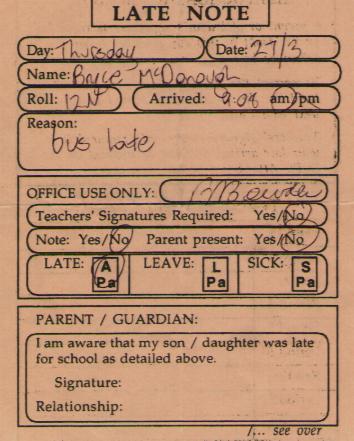 LATE NOTE
Day: Thursday Date: 27/3
Name: Bryce McDonough
Roll: 12N Arrived: 9:08 am/pm
Reason:
bus late
OFFICE USE ONLY:
Teachers' Signatures Required: Yes/No
Note: Yes/No Parent present: Yes/No
LATE: A Pa LEAVE: L Pa SICK: S Pa
PARENT / GUARDIAN:
I am aware that my son / daughter was late
for school as detailed above.
Signature:
Relationship:
/... see over